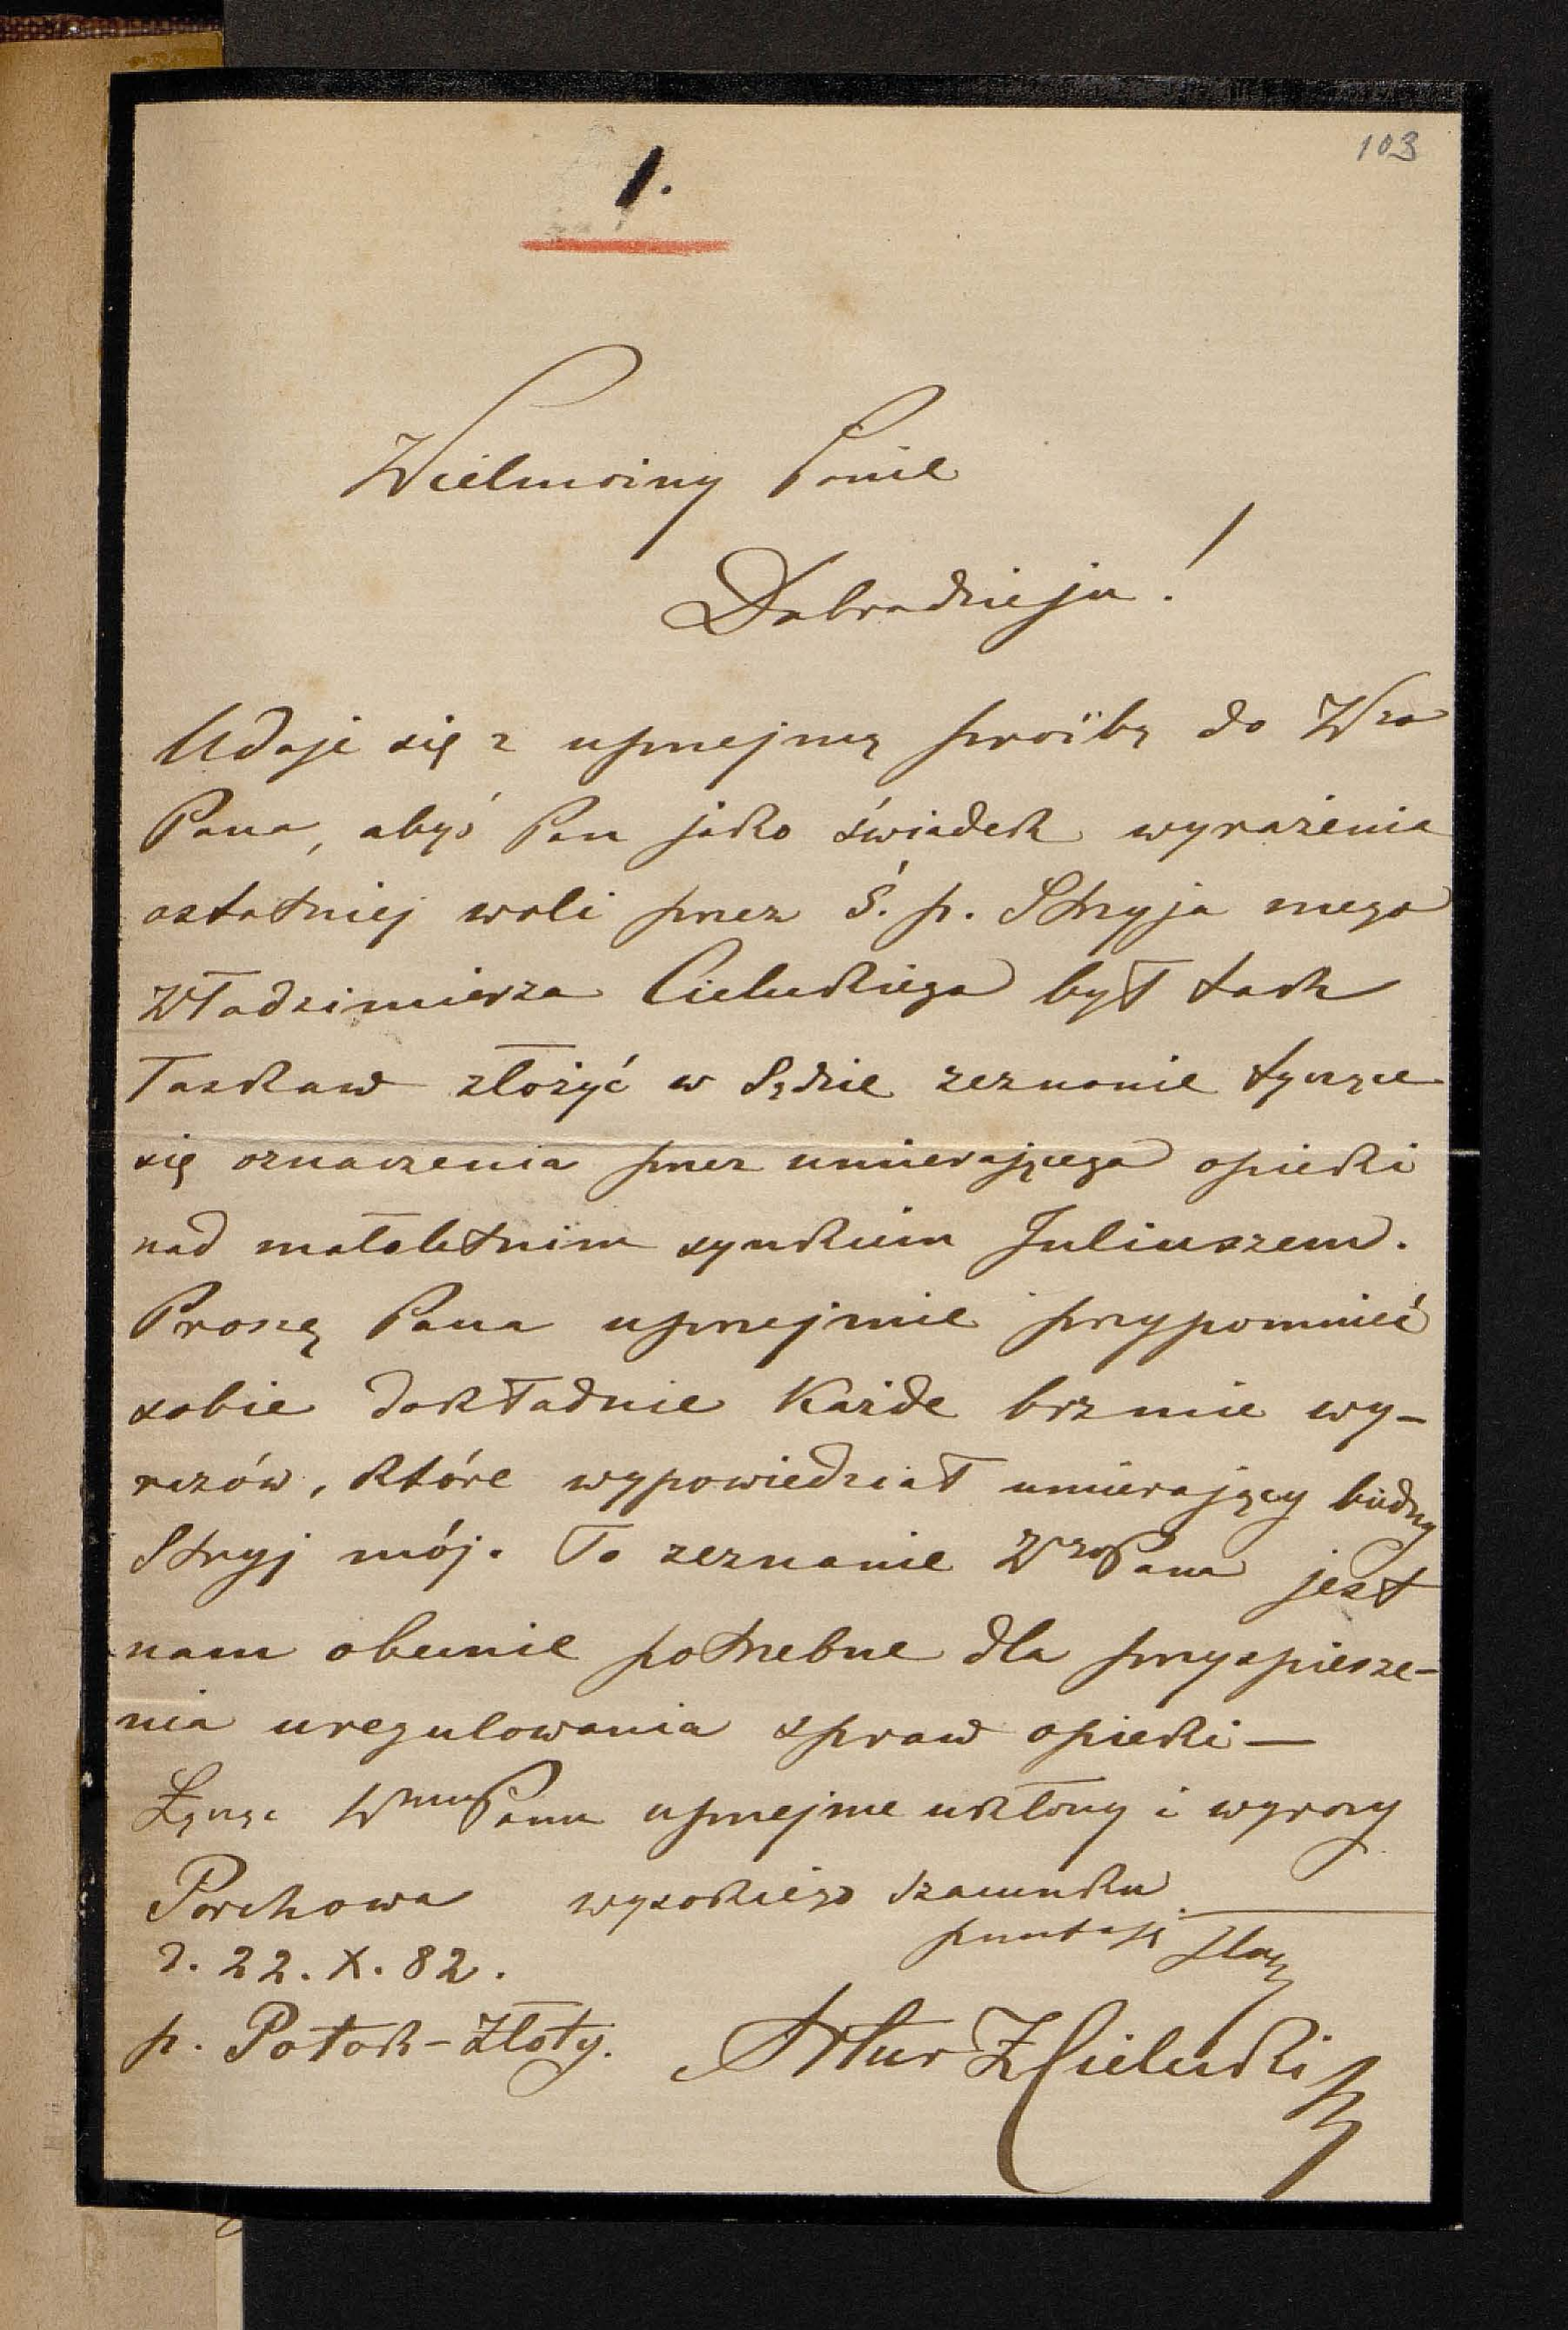 103
1.
Wielmożny Panie
Dobrodzieju!
Udaję się z uprzejmą prośbą do Wgo
Pana, abyś Pan jako świadek wyrażenia
ostatniej woli przez Ś. p. Stryja mego
Włodzimierza Cieleckiego był tak
łaskaw złożyć w Sądzie zeznanie tyczące
się oznaczenia przez umierającego opieki
nad małoletnim synkiem Juliuszem.
Proszę Pana uprzejmie przypomnieć
sobie dokładnie każde brzmie wy-
razów, które wypowiedział umierający biedny
Stryj mój. To zeznanie WgoPana jest
nam obecnie potrzebne dla przyspiesze-
nia uregulowania spraw opieki—
Łączę WmuPanu uprzejme ukłony i wyrazy
Porchowa wysokiego szacunku
d. 22. X. 82. pozostaję sługą
p. Potok-Złoty. Artur Z Cielecki